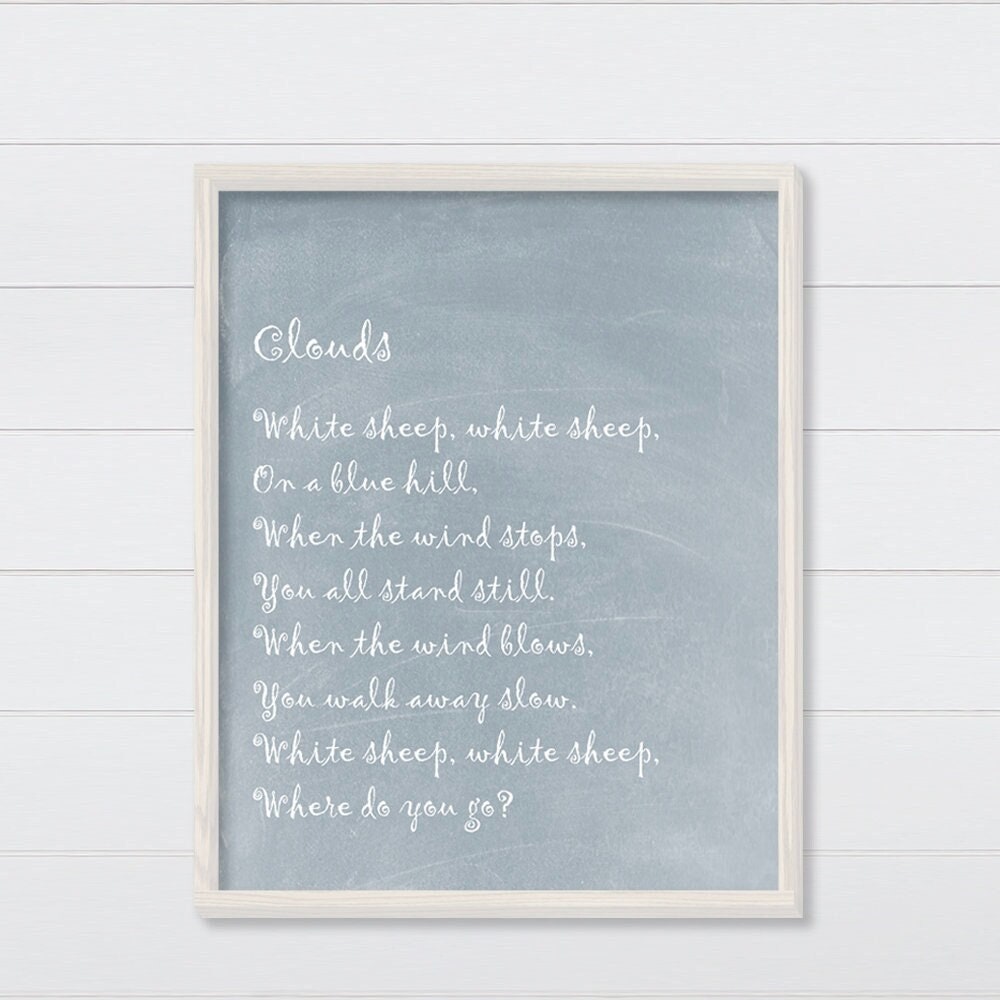 Clouds
White sheep, white sheep,
On a blue hill,
When the wind stops,
You all stand still.
When the wind blows,
You walk away slow.
White sheep, white sheep,
Where do you go?